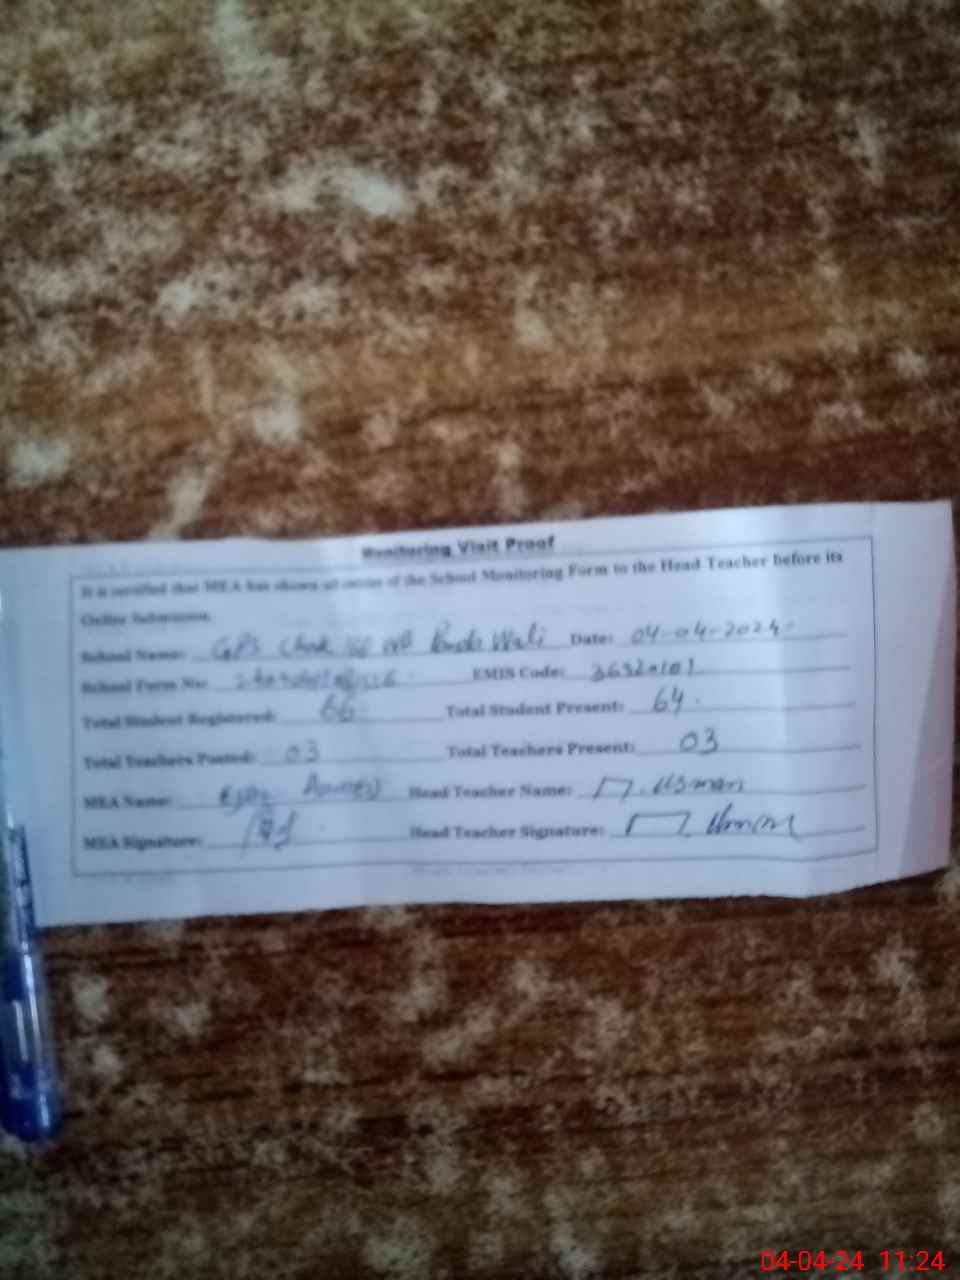 Monitoring Visit Proof
It is certified that MEA has shown all entries of the School Monitoring Form to the Head Teacher before its
Online Submission.
School Name: GPS Chak NB Wali Date: 04-04-2024
School Form No: EMIS Code:
Total Student Registered: 66 Total Student Present: 64
Total Teachers Posted: 03 Total Teachers Present: 03
MEA Name: Ahmed Head Teacher Name: M. Usman
MEA Signature: Head Teacher Signature: M. Usman
04-04-24 11:24